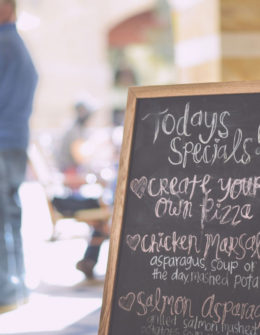 Todays
Specials!
Create your
own pizza
Chicken Marsala
asparagus, soup of
the day, mashed pota
Salmon Asparag
grilled salmon mashed